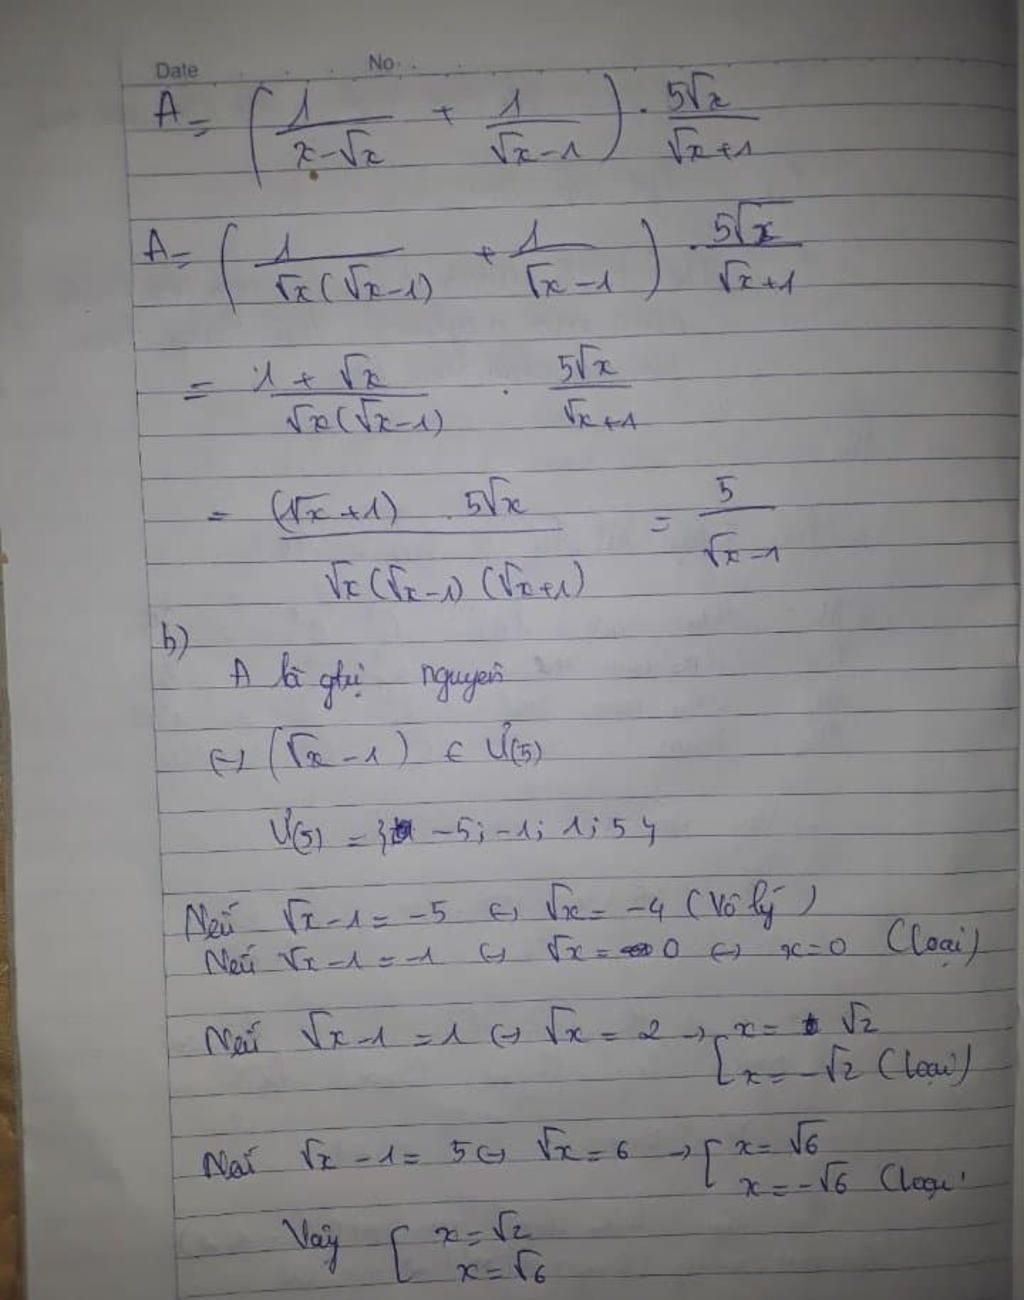 Date No.
A = ( 1/(x-√x) + 1/(√x-1) ) . 5√x/(√x+1)
A = ( 1/(√x(√x-1)) + 1/(√x-1) ) . 5√x/(√x+1)
= (1+√x)/(√x(√x-1)) . 5√x/(√x+1)
= ((√x+1) . 5√x)/(√x(√x-1)(√x+1)) = 5/(√x-1)
b)
A là gtrị nguyên
(-) (√x-1) ∈ Ư(5)
Ư(5) = { -5; -1; 1; 5 }
Nếu √x-1 = -5 (-) √x = -4 (Vô lý)
Nếu √x-1 = -1 (-) √x = 0 (-) x=0 (loại)
Nếu √x-1 = 1 (-) √x = 2 → [ x = √2
x = -√2 (loại)
Nếu √x-1 = 5 (-) √x = 6 → [ x = √6
x = -√6 (loại
Vậy [ x = √2
x = √6